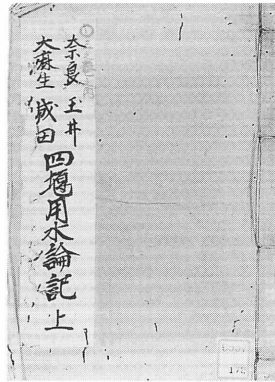 奈良 玉井
大麻生 成田
四堰用水論記 上